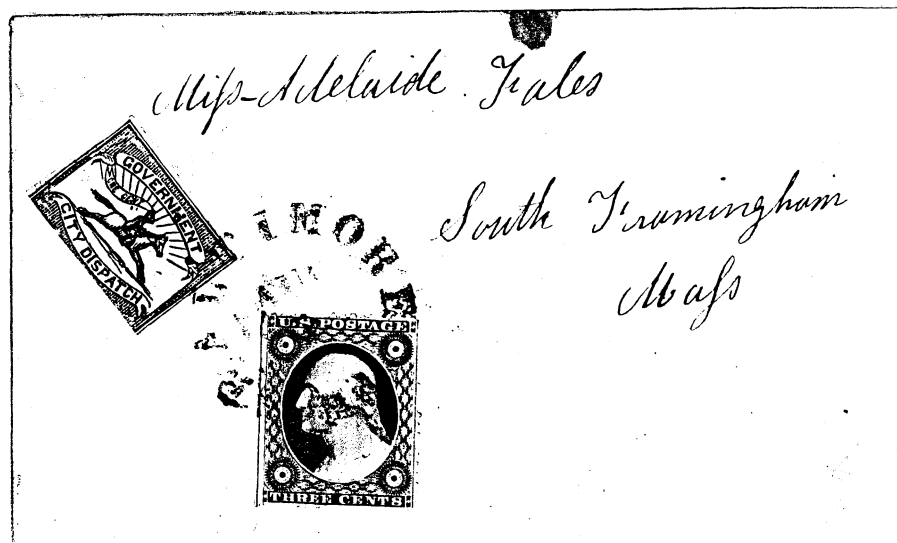 Miss Adelaide Fales
South Framingham
Mass
GOVERNMENT
ONE CENT
CITY DISPATCH
IMOR
U.S. POSTAGE
THREE CENTS